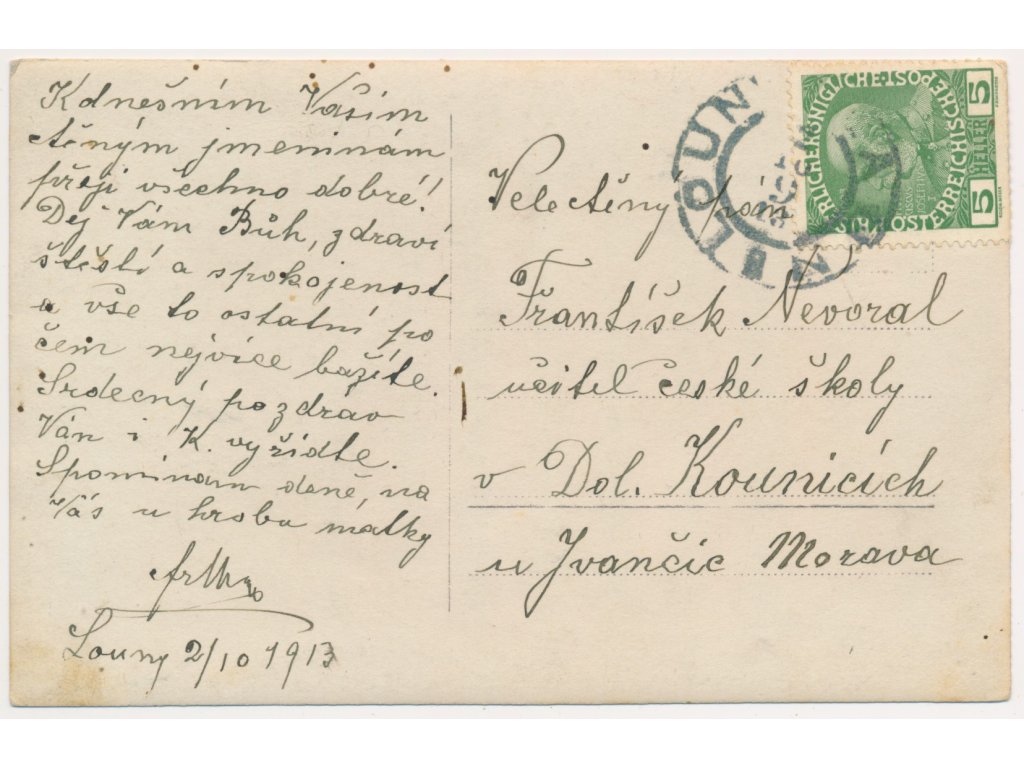 K dnešním Vašim
ctěným jmeninám
přeji všechno dobré!
Dej Vám Bůh, zdraví
štěstí a spokojenost
a vše to ostatní po
čem nejvíce bažíte.
Srdečný pozdrav
Ván i K. vyřídte.
Spomínam deně, na
Vás u hrobu matky
Louny 2/10 1913
Velectěný pán
František Nevoral
učitel české školy
v Dol. Kounicích
u Ivančic Morava
LOUN
5 HELLER 5